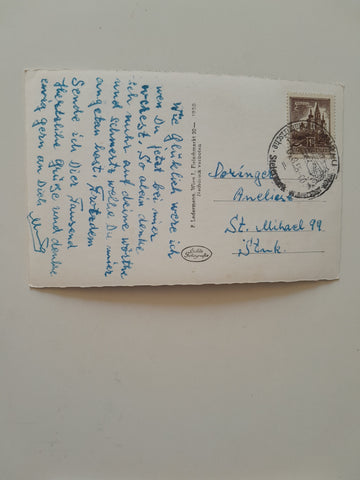 Wie Glücklich were ich
wen Du jetzt bei mir
werest. So alein denke
ich mir nur auf deine wörthe
und schwerts welche Du mier
angetan hast, Trotzdem
Sende ich Dir Tausend
Herzliche Grüße und denke
ewig gern an Dich
P. Ledermann, Wien I, Fleischmarkt 20 — 1950
Nachdruck verboten
Echte
Fotografie
Aneliese
St. Mihael 99
Stmk.